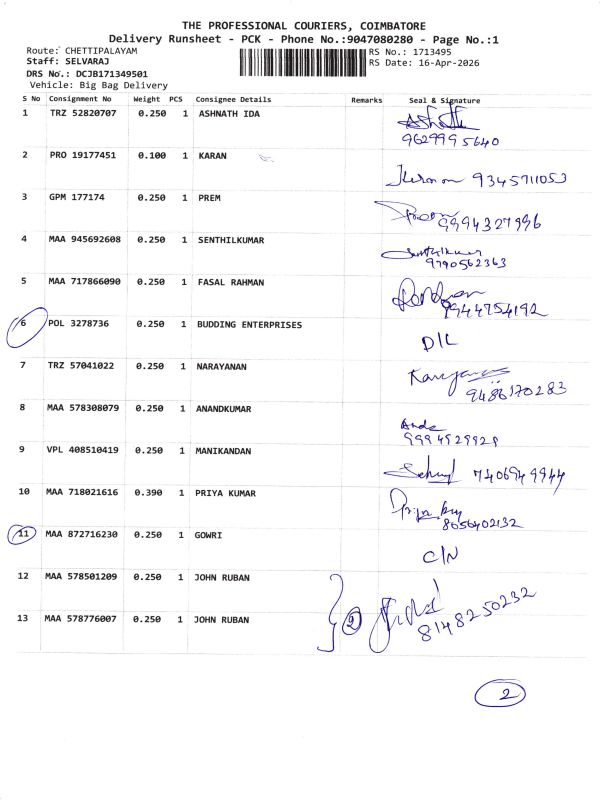 THE PROFESSIONAL COURIERS, COIMBATORE
Delivery Runsheet - PCK - Phone No.:9047080280 - Page No.:1
Route: CHETTIPALAYAM RS No.: 1713495
Staff: SELVARAJ RS Date: 16-Apr-2026
DRS No.: DCJB171349501
Vehicle: Big Bag Delivery
S No Consignment No Weight PCS Consignee Details Remarks Seal & Signature
1 TRZ 52820707 0.250 1 ASHNATH IDA
9629995640
2 PRO 19177451 0.100 1 KARAN
9345711053
3 GPM 177174 0.250 1 PREM
9994327996
4 MAA 945692608 0.250 1 SENTHILKUMAR Senthilkumar
9790562363
5 MAA 717866090 0.250 1 FASAL RAHMAN
9944754192
6 POL 3278736 0.250 1 BUDDING ENTERPRISES D/L
7 TRZ 57041022 0.250 1 NARAYANAN
9486170283
8 MAA 578308079 0.250 1 ANANDKUMAR
9994529929
9 VPL 408510419 0.250 1 MANIKANDAN 7406949944
10 MAA 718021616 0.390 1 PRIYA KUMAR
8056402132
11 MAA 872716230 0.250 1 GOWRI C/N
12 MAA 578501209 0.250 1 JOHN RUBAN
2 8148250232
13 MAA 578776007 0.250 1 JOHN RUBAN
2